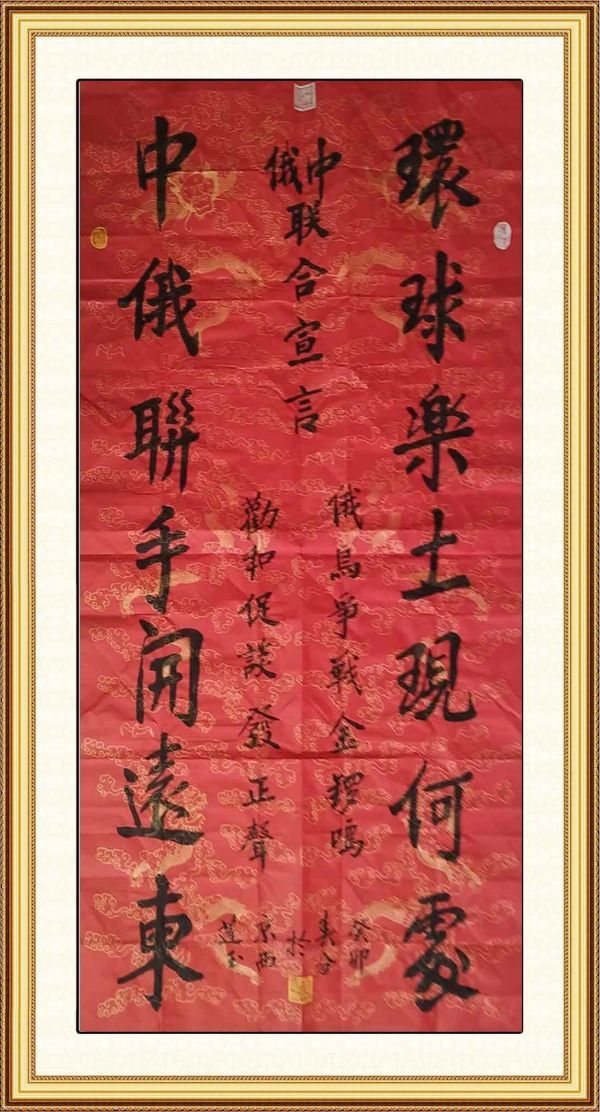 中俄联合宣言
俄烏爭戰金鑼鳴
勸和促談發正聲
環球樂土現何處
中俄聯手開遠東
癸卯
於
京西